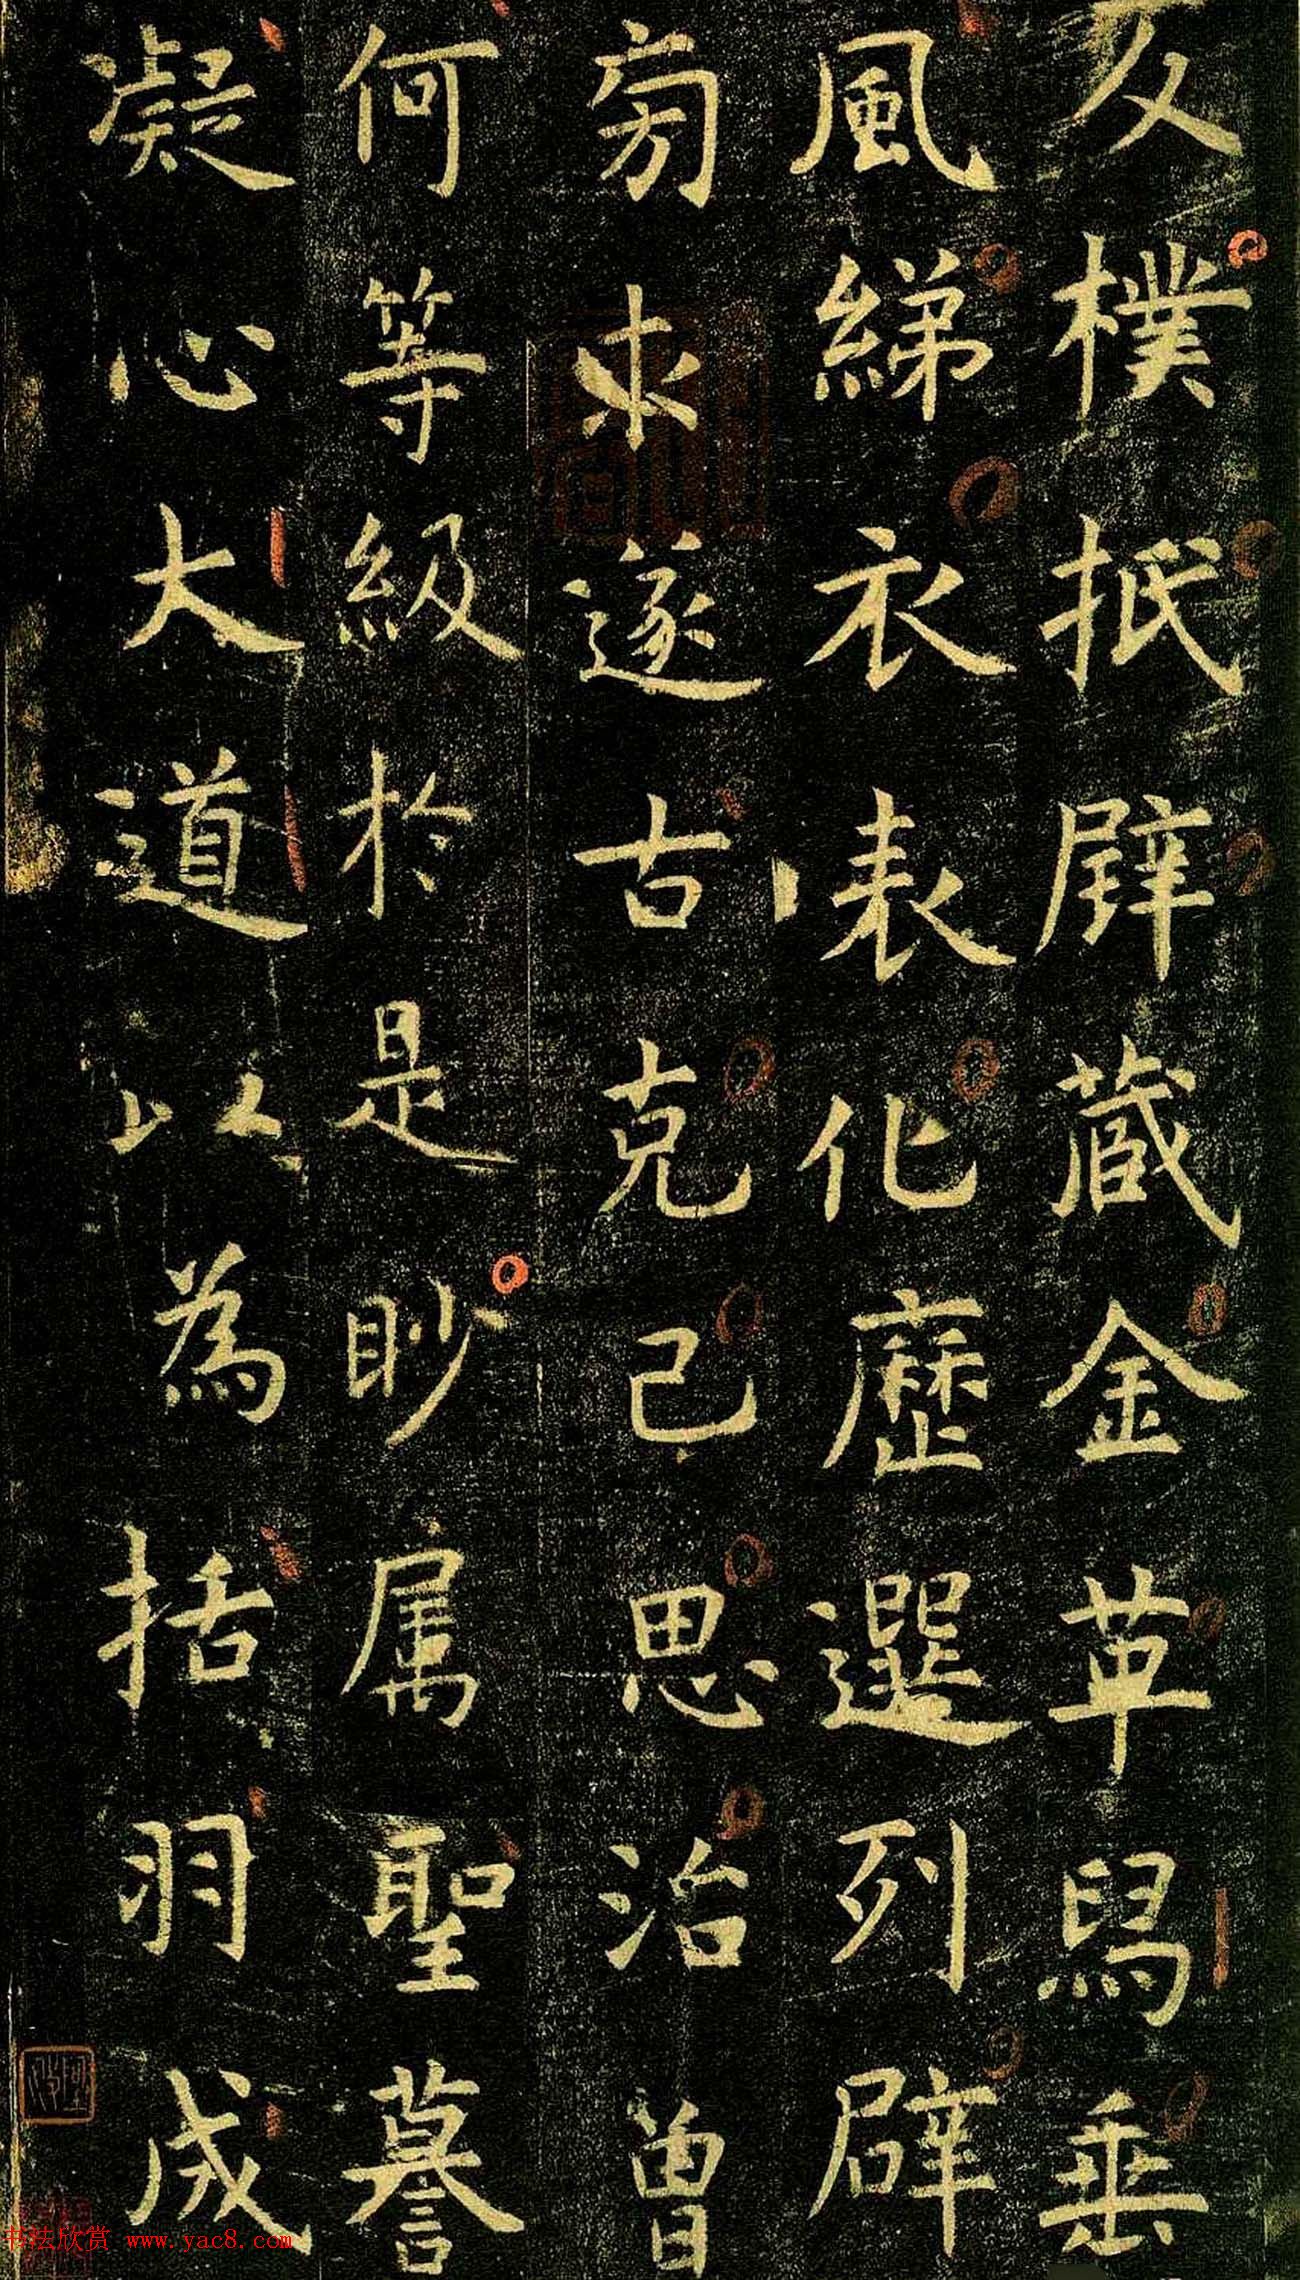 反樸抵璧藏金革舄垂
風綈衣表化歷選列辟
旁求邃古克己思治曾
何等級於是眇属聖謩
凝心大道以為括羽成
书法欣赏 www.yac8.com